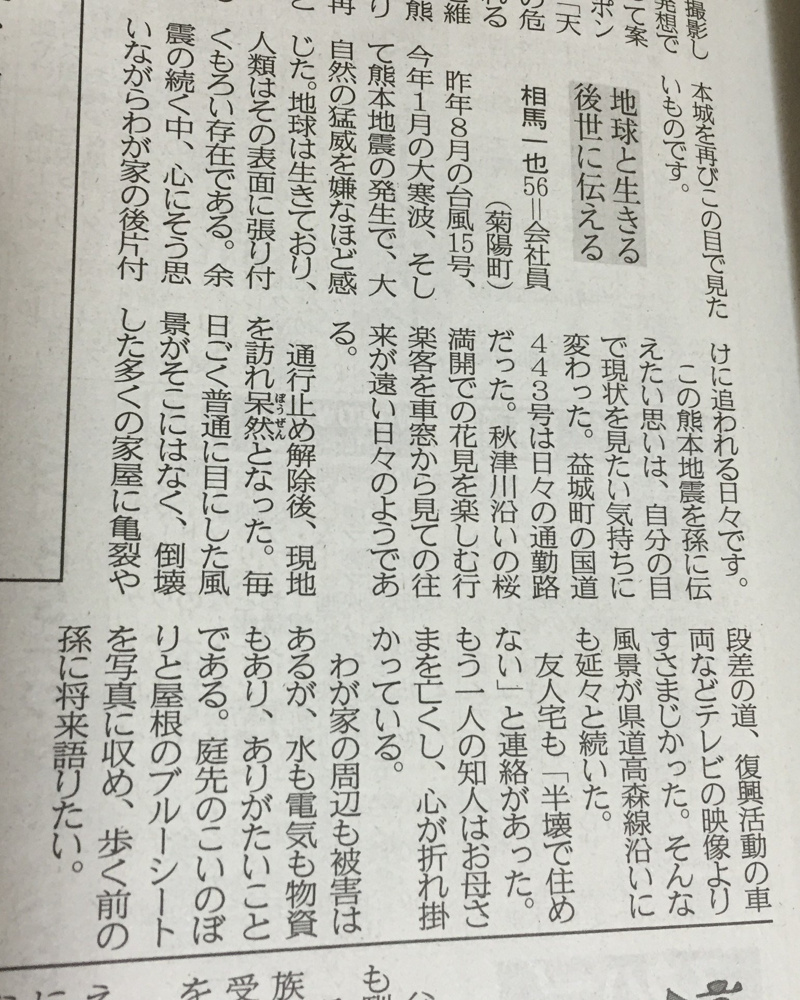 撮影し
発想で
て案
ポン
「天
の危
れる
維
熊
り
再
と
本城を再びこの目で見た
いものです。
地球と生きる
後世に伝える
相馬一也56＝会社員
（菊陽町）
昨年８月の台風15号、
今年１月の大寒波、そし
て熊本地震の発生で、大
自然の猛威を嫌なほど感
じた。地球は生きており、
人類はその表面に張り付
くもろい存在である。余
震の続く中、心にそう思
いながらわが家の後片付
けに追われる日々です。
この熊本地震を孫に伝
えたい思いは、自分の目
で現状を見たい気持ちに
変わった。益城町の国道
４４３号は日々の通勤路
だった。秋津川沿いの桜
満開での花見を楽しむ行
楽客を車窓から見ての往
来が遠い日々のようであ
る。
通行止め解除後、現地
を訪れ呆然ぼうぜんとなった。毎
日ごく普通に目にした風
景がそこにはなく、倒壊
した多くの家屋に亀裂や
段差の道、復興活動の車
両などテレビの映像より
すさまじかった。そんな
風景が県道高森線沿いに
も延々と続いた。
友人宅も「半壊で住め
ない」と連絡があった。
もう一人の知人はお母さ
まを亡くし、心が折れ掛
かっている。
わが家の周辺も被害は
あるが、水も電気も物資
もあり、ありがたいこと
である。庭先のこいのぼ
りと屋根のブルーシート
を写真に収め、歩く前の
孫に将来語りたい。
も
族
受
を
え
に